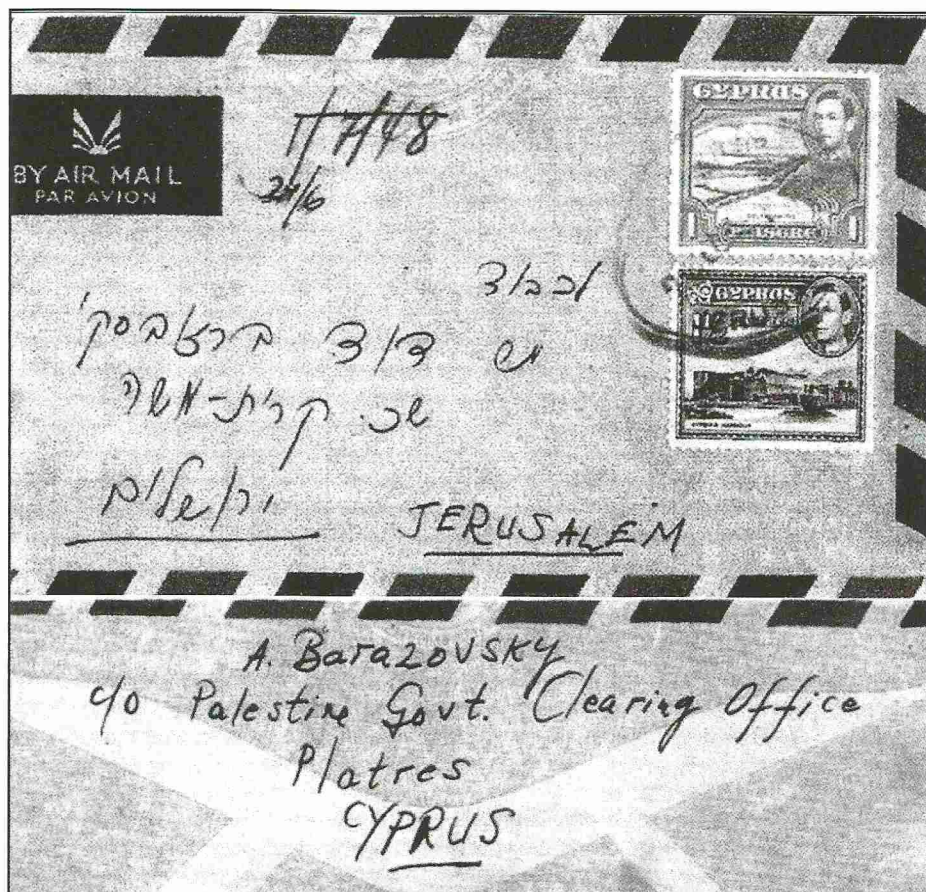 BY AIR MAIL
PAR AVION
1/7/48
24/6
CYPRUS
1 PIASTRE 1
CYPRUS
KYRENIA HARBOUR
לכבוד
מש דוד ברזובסקי
שכ. קרית-משה
ירושלים
JERUSALEM
A. Barazovsky
c/o Palestine Govt. Clearing Office
Platres
CYPRUS